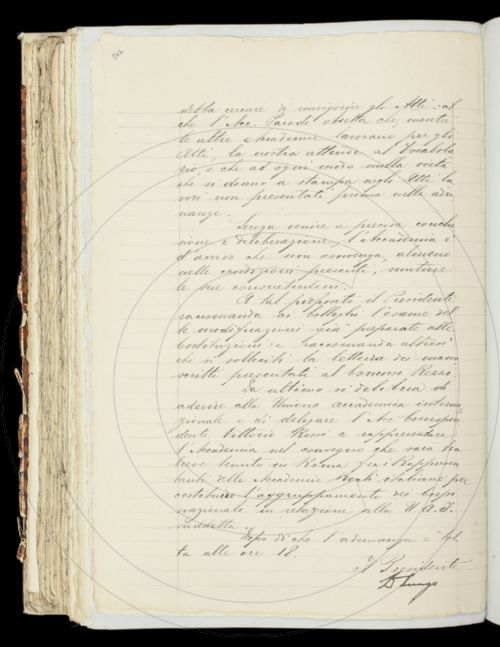 502
debba cercare di rinvigorire gli Atti: al
che l'Acc. Parodi obietta che, mentre
le altre Accademie lavorano per gli
Atti, la nostra attende al Vocabola
rio, e che ad ogni modo nulla vieta
che si diano a stampa negli Atti la
vori non presentati prima nelle adu
nanze.
Senza venire a precisa conclu
sione e deliberazione, l'Accademia è
d'avviso che non convenga, almeno
nelle condizioni presenti, mutare
le sue consuetudini.
A tal proposito il Presidente
raccomanda ai colleghi l'esame del
le modificazioni già preparate alle
Costituzioni: e raccomanda altresì
che si solleciti la lettura dei mano
scritti presentati al concorso Rezzi.
In ultimo si delibera di
aderire alla Unione accademica interna
zionale e di delegare l'Acc. corrispon
dente Vittorio a rappresentare
l'Accademia nel convegno che sarà fra
breve tenuto in Roma fra i Rappresen
tanti delle Accademie Reali italiane per
costituire l'aggruppamento dei Corpi
nazionali in relazione alla U. A. I.
suddetta.
Dopo di che l'adunanza è tol
ta alle ore 18.
Il Presidente
D Lungo